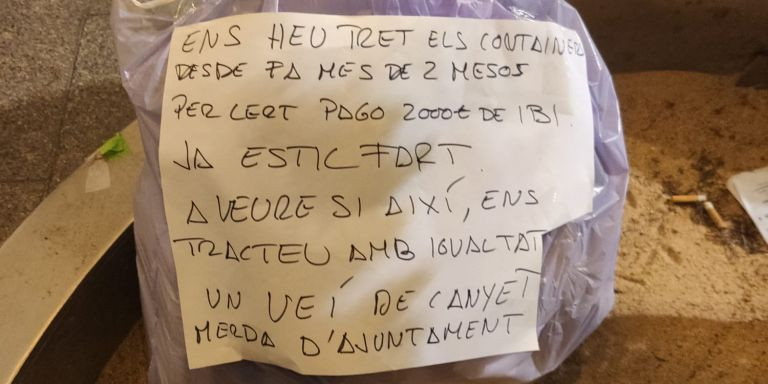 ENS HEU TRET ELS CONTAINER
DESDE FA MES DE 2 MESOS
PER CERT PAGO 2000€ DE IBI.
JA ESTIC FART.
A VEURE SI AIXÍ, ENS
TRACTEU AMB IGUALTAT
UN VEÍ DE CANYET
MERDA D'AJUNTAMENT